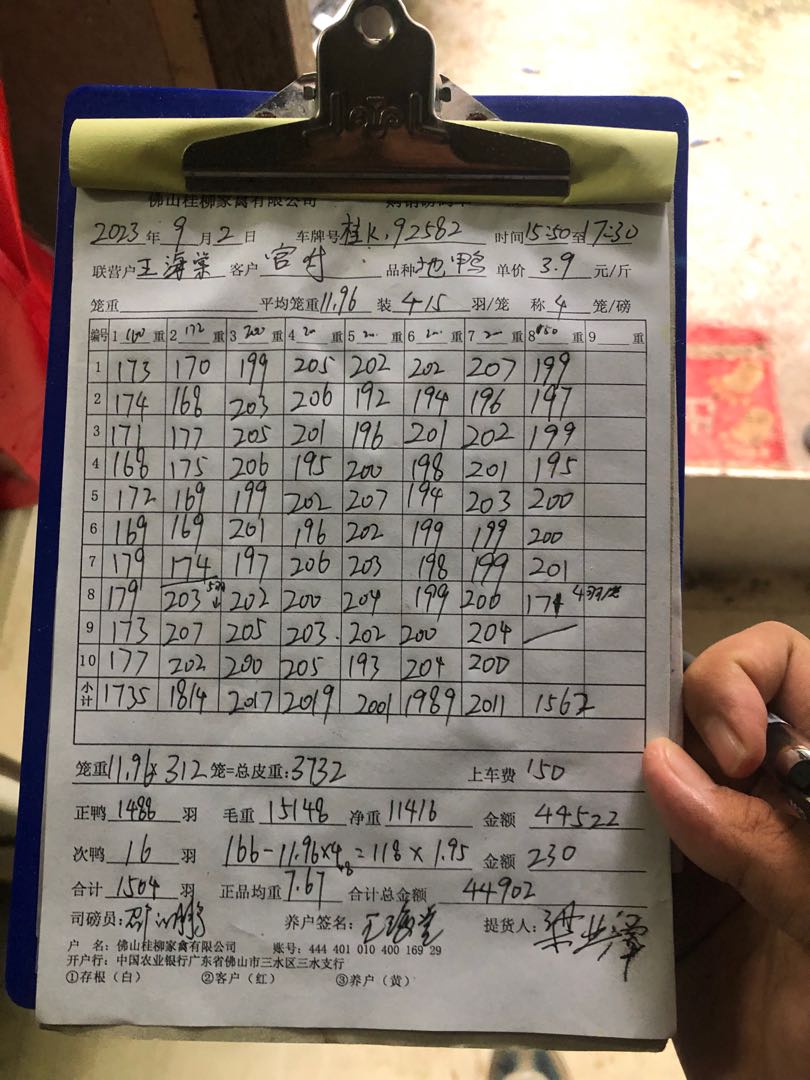 佛山桂柳家禽有限公司
2023年9月2日 车牌号桂K.92582 时间15:50至17:30
联营户王海棠 客户 品种 鸭 单价3.9元/斤
笼重 平均笼重11.96 装4-15羽/笼 称4笼/磅
编号 1 重 2 172 重 3 200 重 4 重 5 重 6 重 7 重 8 重 9 重
1 173 170 199 205 202 202 207 199
2 174 168 203 206 192 194 196 197
3 171 177 205 201 196 201 202 199
4 168 175 206 195 200 198 201 195
5 172 169 199 202 207 194 203 200
6 169 169 201 196 202 199 199 200
7 179 174 197 206 203 198 199 201
8 179 203 202 200 204 199 200 171
9 173 207 205 203 202 200 204
10 177 202 200 205 193 204 200
小计 1735 1814 2017 2019 2001 1989 2011 1562
笼重11.96×312笼=总皮重:3732 上车费150
正鸭1488羽 毛重15148 净重11416 金额44522
次鸭16羽 166-11.96×4=118×1.95 金额230
合计1504羽 正品均重7.67 合计总金额44902
司磅员: 养户签名:王海棠 提货人:梁
户 名:佛山桂柳家禽有限公司 账号:444 401 010 400 169 29
开户行:中国农业银行广东省佛山市三水区三水支行
①存根(白) ②客户(红) ③养户(黄)